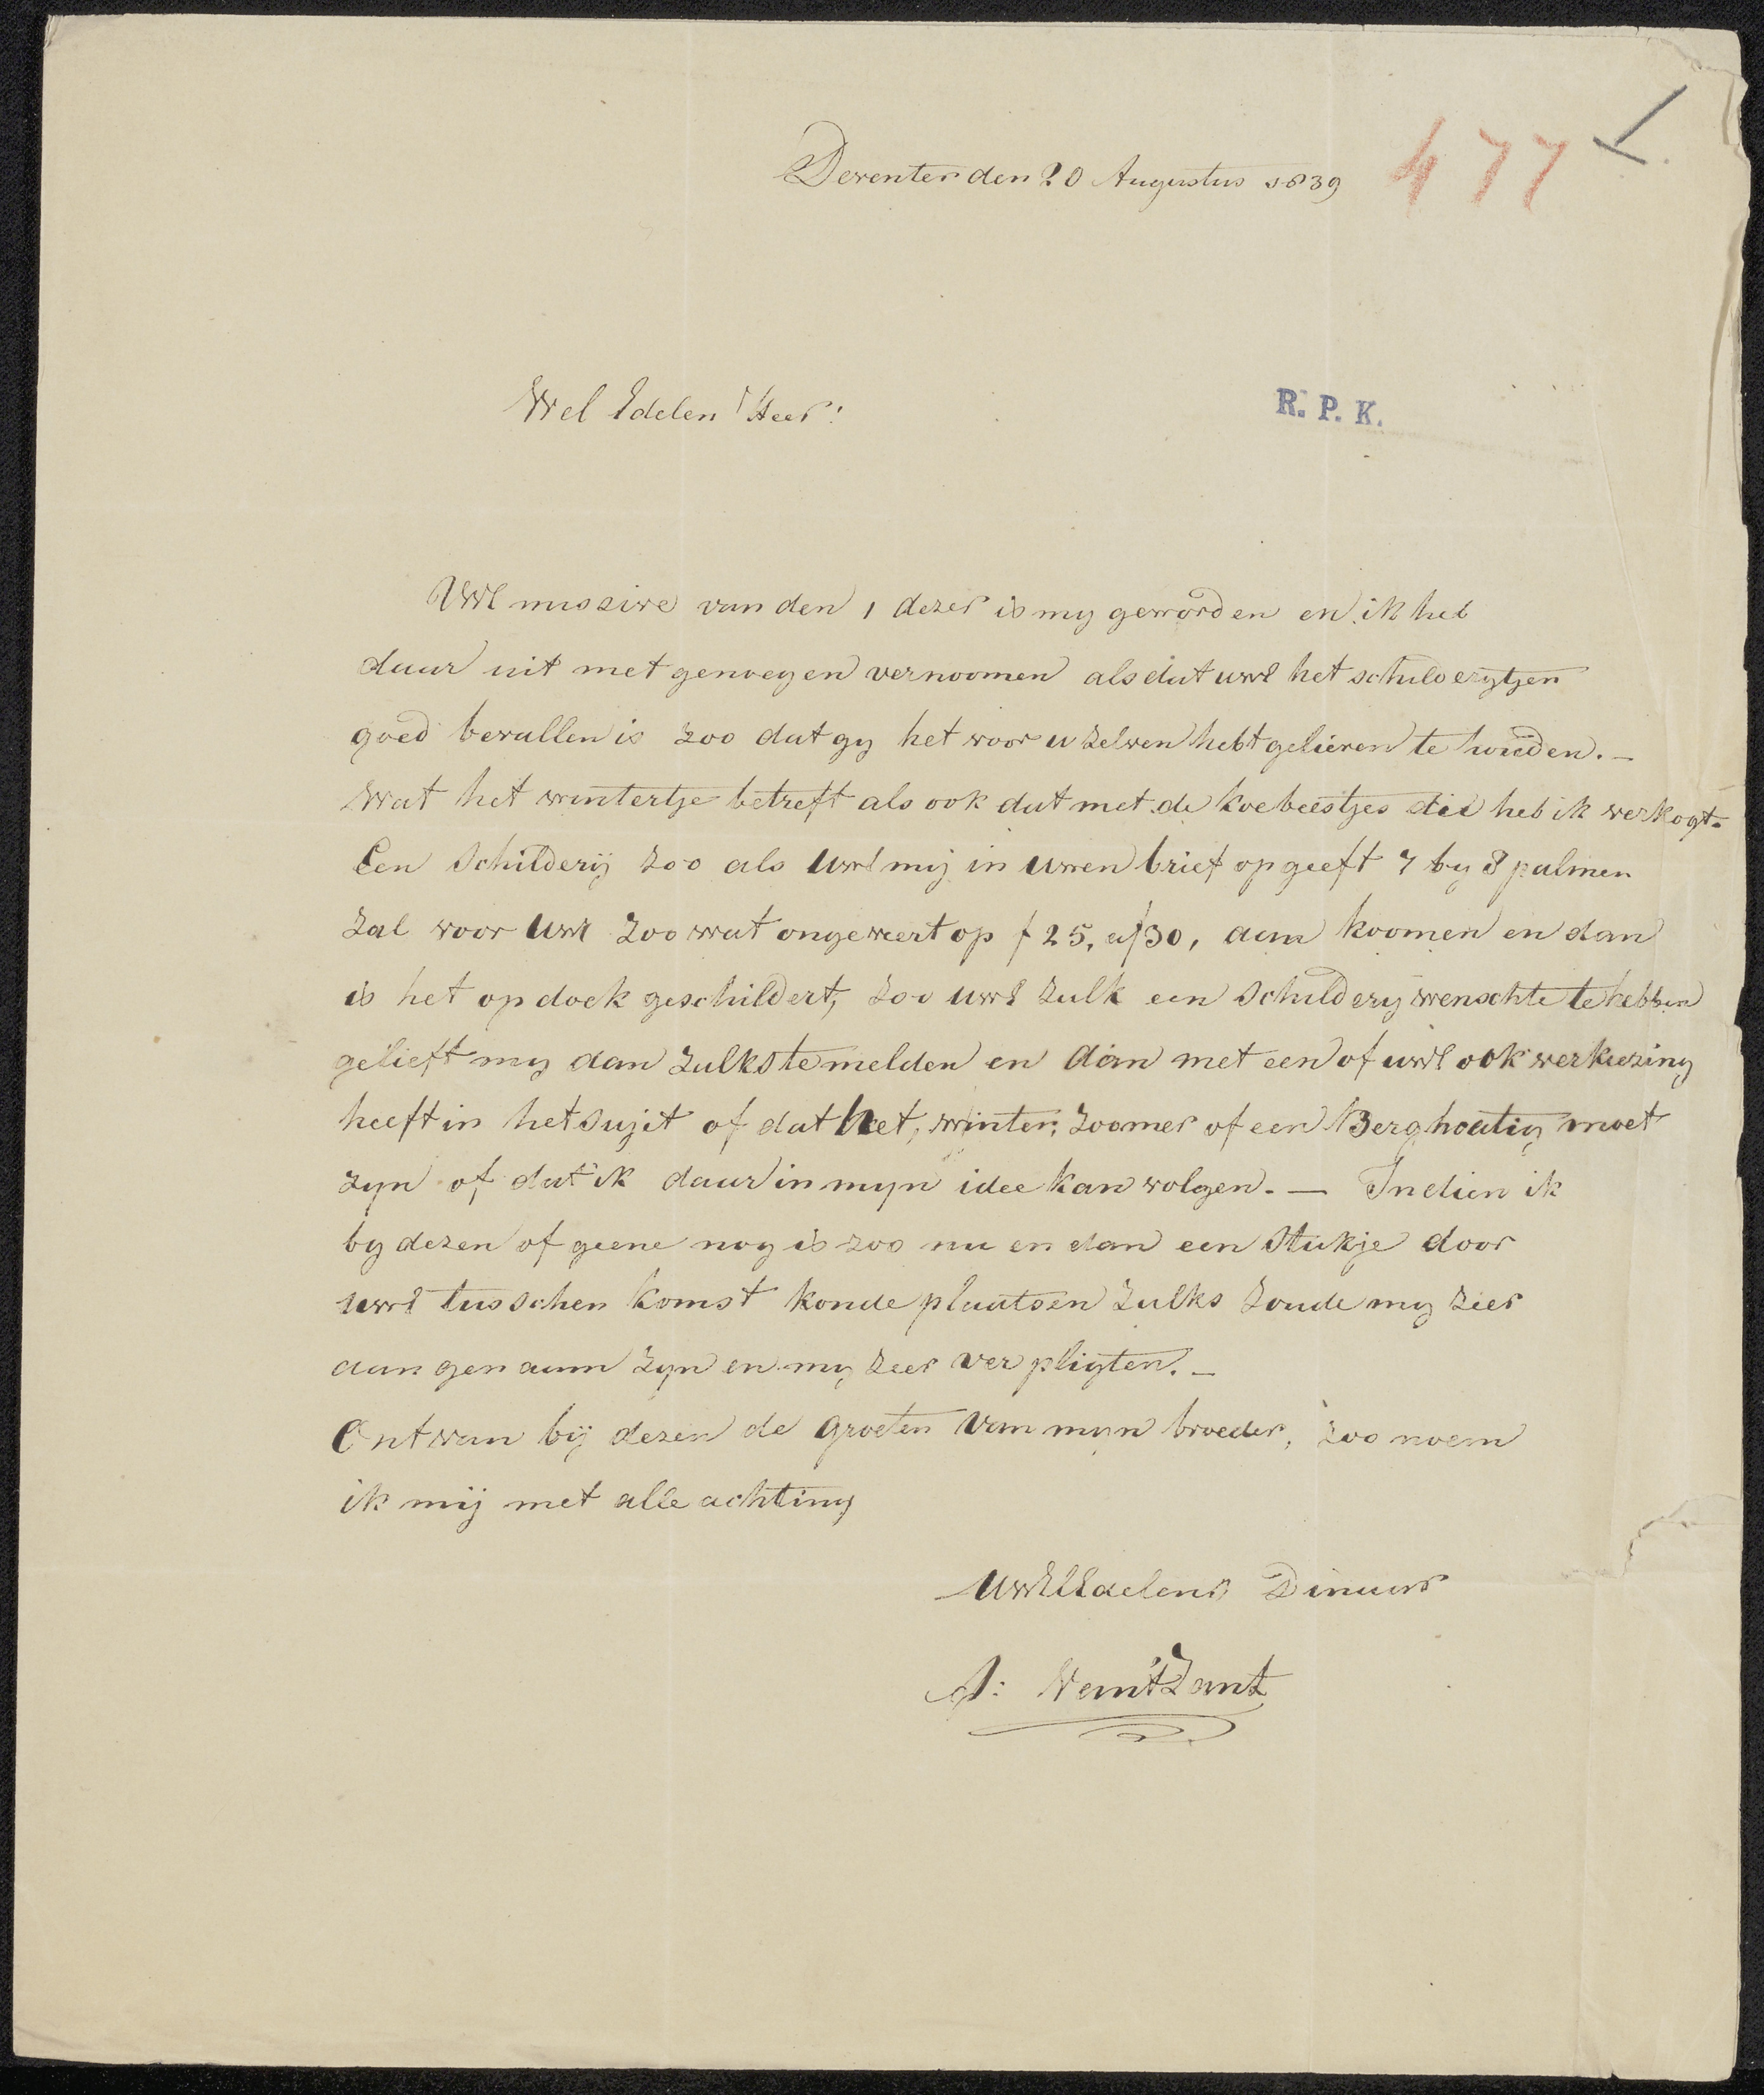 Deventer den 20 Augustus 1839
477
Wel Edelen Heer!
R. P. K.
UWE missive van den 1 dezer is my geworden en ik heb
daar uit met genoegen vernoomen als dat uwE het schilderytjen
goed bevallen is zoo dat gy het voor u zelven hebt gelieven te houden. —
Wat het wintertje betreft als ook dat met de koebeestjes die heb ik verkogt.
Een Schilderij zoo als UwE mij in uwen brief op geeft 7 by 8 palmen
zal voor UwE zoo wat ongeveert op f 25, a f 30, aan koomen en dan
is het op doek geschildert, zoo uwE zulk een schildery wenschte te hebben
gelieft my dan zulks te melden en dan met een of uwE ook verkiezing
heeft in het sujit of dat het, winter, zoomer of een Berg hoatig moet
zyn of dat ik daar in myn idee kan volgen. — Indien ik
by dezen of geene nog is zoo nu en dan een Stukje door
uwE tusschen komst konde plaatsen zulks zoude my zeer
aangenaam zyn en my zeer verpligten. —
Ontvan bij dezen de Groeten van myn broeder, zoo noem
ik mij met alle achting
UwElEdelens Dinaar
A: Van't Zant